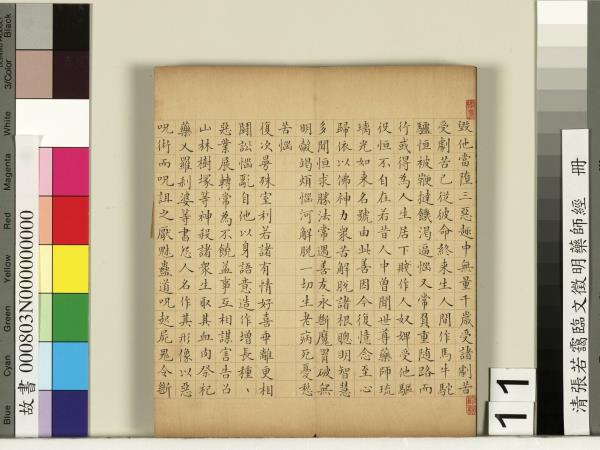 毀他當墮三惡趣中無量千歲受諸劇苦
受劇苦已從彼命終來生人間作馬牛駝
驢恒被鞭撻饑渴逼惱又常負重隨路而
行或得為人生居下賤作人奴婢受他驅
役恒不自在若昔人中曾聞世尊藥師琉
璃光如來名號由此善因今復憶念至心
歸依以佛神力衆苦解脫諸根聰明智慧
多聞恒求勝法常遇善友永斷魔罥破無
明㲉竭煩惱河解脫一切生老病死憂愁
苦惱
復次曼殊室利若諸有情好喜乖離更相
鬪訟惱亂自他以身語意造作增長種、
惡業展轉常為不饒益事互相謀害告召
山林樹塚等神殺諸衆生取其血肉祭祀
藥叉羅剎婆等書怨人名作其形像以惡
呪術而呪詛之厭魅蠱道呪起屍鬼令斷
清張若靄臨文徵明藥師經 冊
11
故書 000803N000000000
Blue
Cyan
Green
Yellow
Red
Magenta
White
3/Color
Black